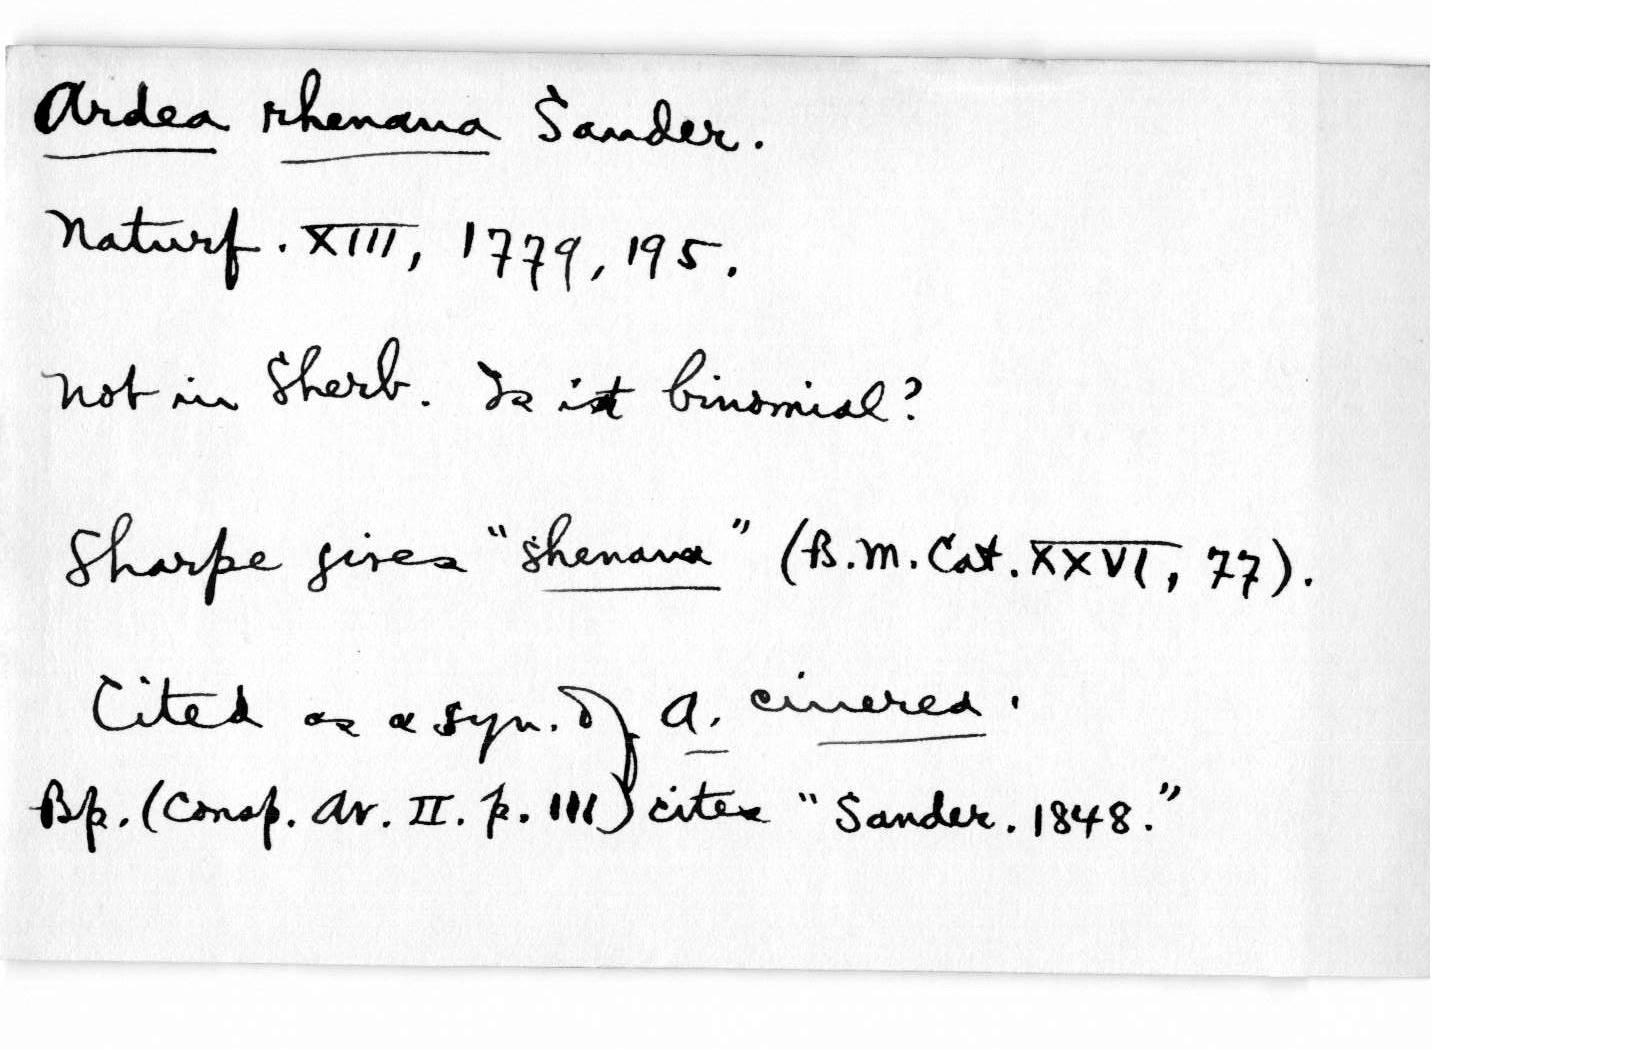 Ardea rhenana Sander.
Naturf. XIII, 1779, 195.
Not in Sherb. Is it binomial?
Sharpe gives "shenana" (B.M. Cat. XXVI, 77).
Cited as a syn. of A. cinerea.
Bp. (Consp. Av. II. p. 111) cites "Sander. 1848."